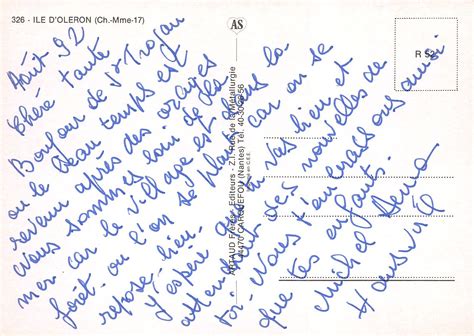 326 - ILE D'OLERON (Ch.-Mme-17)
AS
R 52
ARTAUD Frères - Editeurs - Z.I. Rue de la Métallurgie
44470 CARQUEFOU (Nantes) Tél. 40-30
Août 92
Chère tante
Bonjour de St Trojan
ou le beau temps est
revenu après des orages
Nous sommes loin de la
mer car le village est dans la
forêt. ou l'on se plait car on se
repose bien.
J'y espère que tu vas bien et
attendant des nouvelles de
toi. Nous t'embrassons ainsi
que tes enfants.
Michel Denis